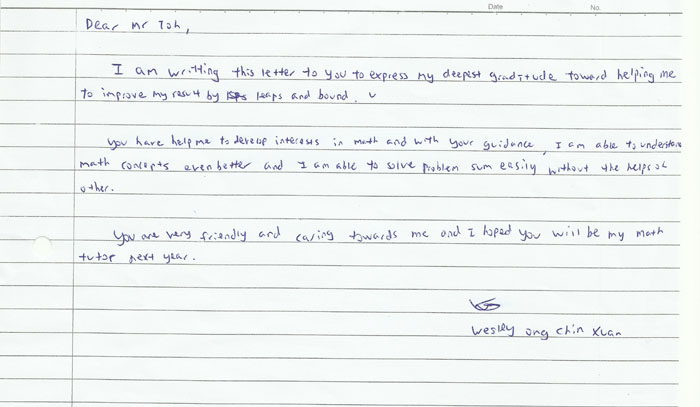 Date No.
Dear Mr Toh,
I am writting this letter to you to express my deepest graditude toward helping me
to improve my result by leaps and bound.
You have help me to develop interests in math and with your guidance, I am able to understand
math concepts even better and I am able to solve problem sum easily without the helps of
other.
You are very friendly and caring towards me and I hoped you will be my math
tutor next year.
Wesley Ong Chin Xuan